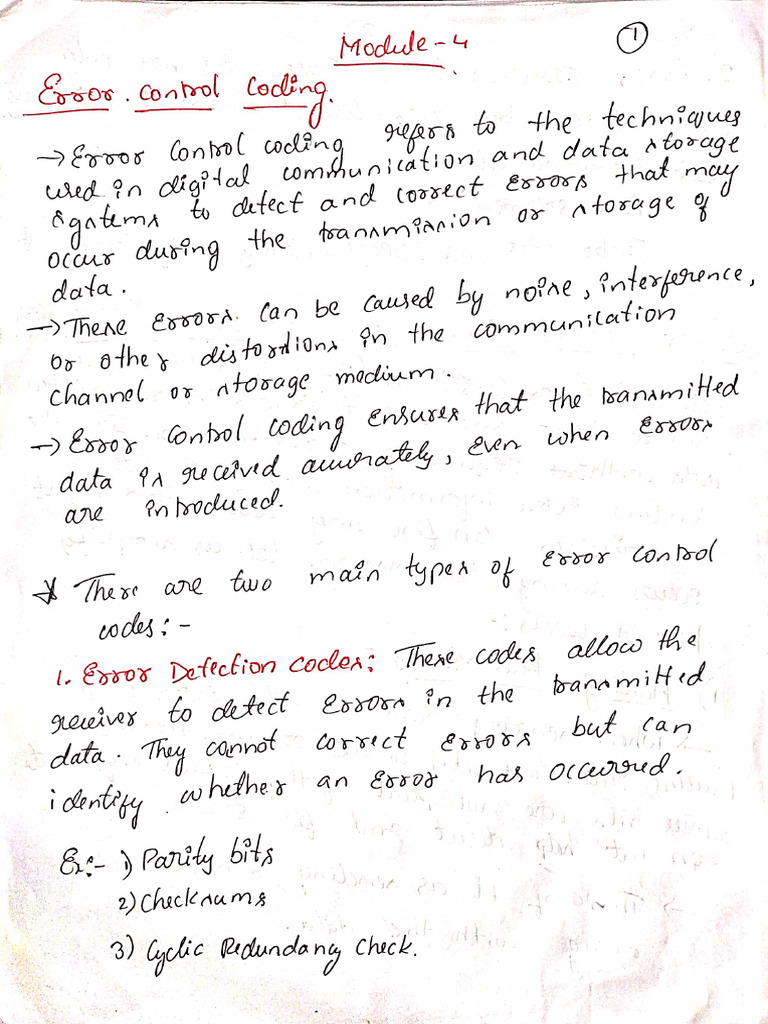 Module-4
1
Error control coding.
→ Error control coding refers to the techniques
used in digital communication and data storage
systems to detect and correct errors that may
occur during the transmission or storage of
data.
→ These errors can be caused by noise, interference,
or other distortions in the communication
channel or storage medium.
→ Error control coding ensures that the transmitted
data is received accurately, even when errors
are introduced.
* There are two main types of error control
codes:-
1. Error Detection codes: These codes allow the
receiver to detect errors in the transmitted
data. They cannot correct errors but can
identify whether an error has occurred.
Ex:- 1) Parity bits
2) Checksums
3) Cyclic Redundancy Check.